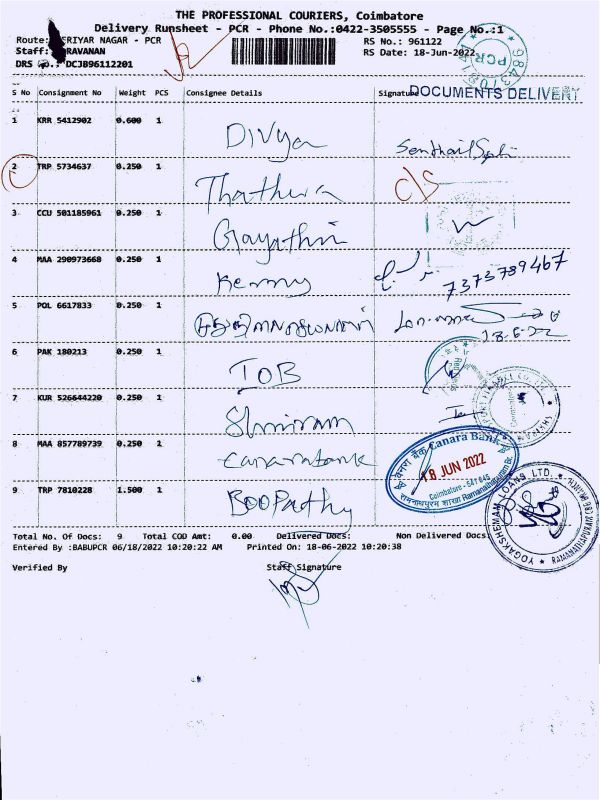 THE PROFESSIONAL COURIERS, Coimbatore
Delivery Runsheet - PCR - Phone No.:0422-3505555 - Page No.:1
Route: ERIYAR NAGAR - PCR
RS No.: 961122
Staff: RAVANAN
RS Date: 18-Jun-2022
DRS No.: DCJB96112201
DOCUMENTS DELIVERY
S No Consignment No Weight PCS Consignee Details Signature
1 KRR 5412902 0.600 1 Divya
2 TRP 5734637 0.250 1 C/S
3 CCU 501185961 0.250 1 Gayathri
4 MAA 290973668 0.250 1 Kenny 7373789467
5 POL 6617833 0.250 1 18-6-22
6 PAK 180213 0.250 1 IOB
7 KUR 526644220 0.250 1 Shriram
8 MAA 857789739 0.250 1 canarabank
Canara Bank
18 JUN 2022
Coimbatore - 641045
9 TRP 7810228 1.500 1 BOOPathy
YOGAKSHEMAM LOANS LTD.
Total No. Of Docs: 9 Total COD Amt: 0.00 Delivered Docs: Non Delivered Docs:
Entered By :BABUPCR 06/18/2022 10:20:22 AM Printed On: 18-06-2022 10:20:38
Verified By Staff Signature